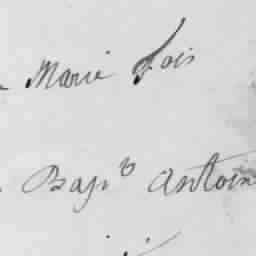 Marie fois
Bap^te Antoin